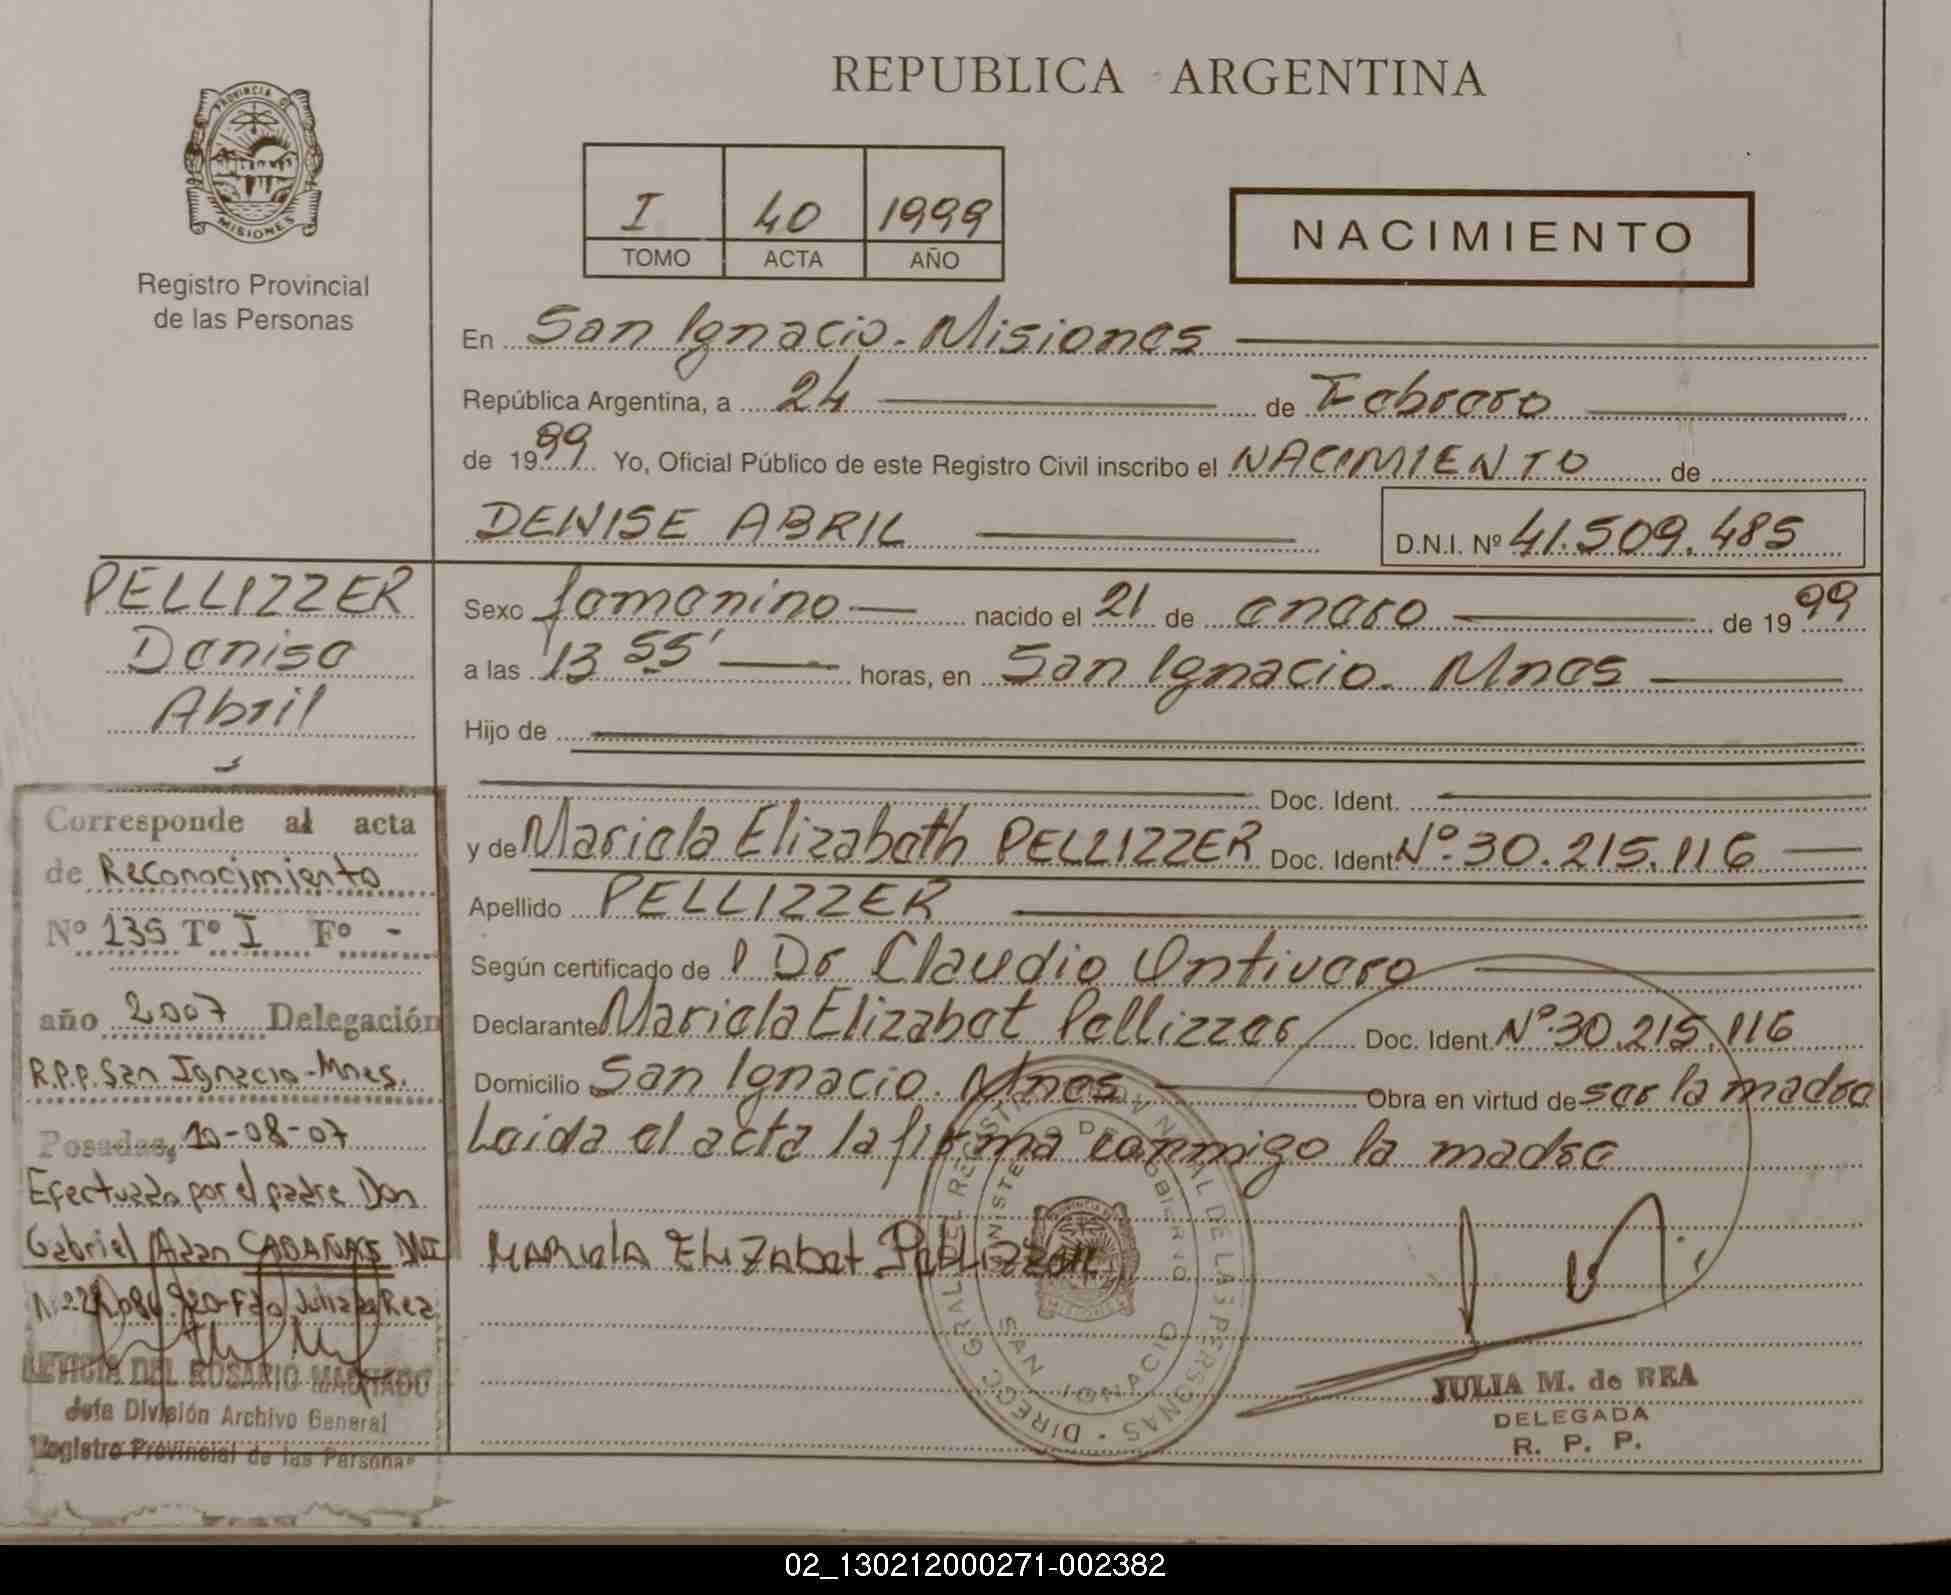 REPUBLICA ARGENTINA
PROVINCIA DE
MISIONES
Registro Provincial
de las Personas
I 40 1999
TOMO ACTA AÑO
NACIMIENTO
En San Ignacio - Misiones
República Argentina, a 24 de Febrero
de 1999 Yo, Oficial Público de este Registro Civil inscribo el NACIMIENTO de
DENISE ABRIL D.N.I. Nº 41.509.485
PELLIZZER
Denise
Abril
Sexo femenino nacido el 21 de enero de 1999
a las 13 55' horas, en San Ignacio - Mnes
Hijo de
Doc. Ident.
y de Mariela Elizabeth PELLIZZER Doc. Ident. Nº 30.215.116
Apellido PELLIZZER
Según certificado de Dr Claudio Ontivero
Declarante Mariela Elizabet Pellizzer Doc. Ident. Nº 30.215.116
Domicilio San Ignacio. Mnes Obra en virtud de ser la madre
Leida el acta la firma conmigo la madre
MARIELA ELIZABET PELLIZZER
Corresponde al acta
de Reconocimiento
Nº 135 Tº I Fº -
año 2007 Delegación
R.P.P. San Ignacio - Mnes.
Posadas, 10-08-07
Efectuado por el padre Don
Gabriel Adan CABAÑAS DNI
Fdo Julia de Rea
LETICIA DEL ROSARIO MACHADO
Jefe División Archivo General
Registro Provincial de las Personas
DIRECC GRAL DEL REGISTRO PROVINCIAL DE LAS PERSONAS
MINISTERIO DE GOBIERNO
SAN IGNACIO
JULIA M. de REA
DELEGADA
R. P. P.
02_130212000271-002382